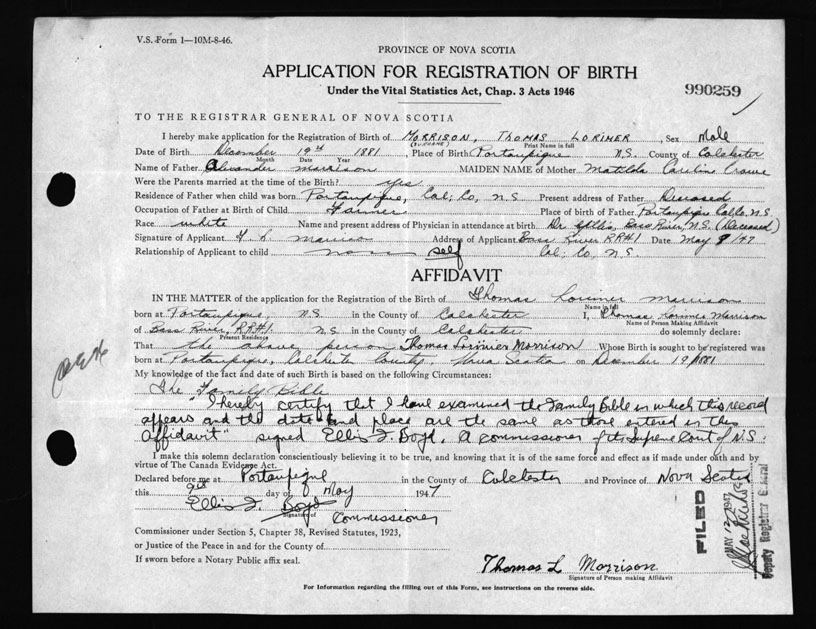 V.S. Form 1—10M-8-46.
PROVINCE OF NOVA SCOTIA
APPLICATION FOR REGISTRATION OF BIRTH
Under the Vital Statistics Act, Chap. 3 Acts 1946
990259
TO THE REGISTRAR GENERAL OF NOVA SCOTIA
I hereby make application for the Registration of Birth of MORRISON, THOMAS LORIMER, Sex Male
(SURNAME) Print Name in full
Date of Birth December 19th 1881, Place of Birth Portaupique N.S. County of Colchester
Month Date Year
Name of Father Alexander Morrison MAIDEN NAME of Mother Matilda Caroline Crowe
Were the Parents married at the time of the Birth? yes
Residence of Father when child was born Portaupique, Col; Co, N.S Present address of Father Deceased
Occupation of Father at Birth of Child Farmer Place of birth of Father Portaupique Col Co. N.S.
Race white Name and present address of Physician in attendance at birth Dr Bass River, N.S. (Deceased)
Signature of Applicant T. L. Morrison Address of Applicant Bass River RR#1 Date May 9/47
Relationship of Applicant to child self Col; Co, N.S.
AFFIDAVIT
IN THE MATTER of the application for the Registration of the Birth of Thomas Lorimer Morrison
Name in full
born at Portaupique, N.S. in the County of Colchester I, Thomas Lorimer Morrison
Name of Person Making Affidavit
of Bass River, RR#1. N.S in the County of Colchester do solemnly declare:
Present Residence
That the above person Thomas Lorimer Morrison Whose Birth is sought to be registered was
born at Portaupique, Colchester County, Nova Scotia on December 19/1881
My knowledge of the fact and date of such Birth is Based on the following Circumstances:
The Family Bible
"I hereby certify that I have examined the Family Bible in which this record
appears and the date and place are the same as those entered in this
Affidavit". signed Ellis F. Boyd, A commissioner of the Supreme Court of N.S.
I make this solemn declaration conscientiously believing it to be true, and knowing that it is of the same force and effect as if made under oath and by
virtue of The Canada Evidence Act.
Declared before me at Portaupique in the County of Colchester and Province of Nova Scotia
this 9th day of May 1947
Ellis F. Boyd
Signature of
Commissioner
Commissioner under Section 5, Chapter 38, Revised Statutes, 1923,
or Justice of the Peace in and for the County of
If sworn before a Notary Public affix seal.
Thomas L Morrison
Signature of Person making Affidavit
For Information regarding the filling out of this Form, see instructions on the reverse side.
FILED
MAY 12 1947
Deputy Registrar General